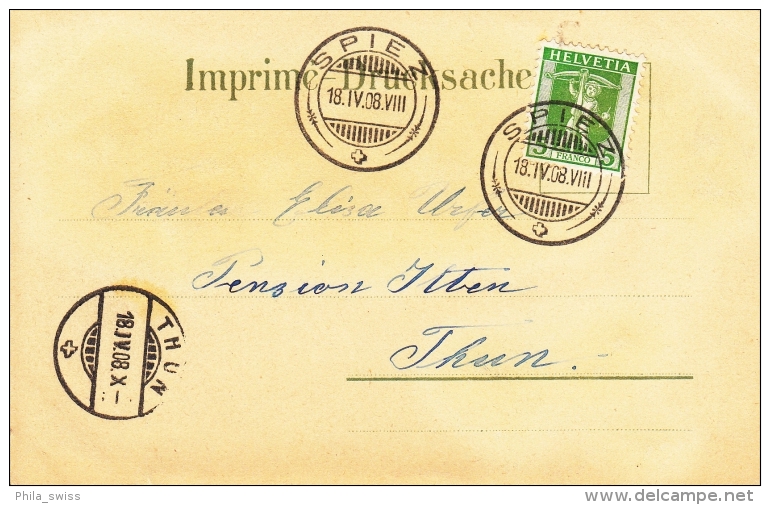 SPIEZ
18.IV.08.VIII
Imprimé. Drucksache
HELVETIA
5 FRANCO 5
SPIEZ
18.IV.08.VIII
Elisa
Pension Itten
Thun.
THUN
18.IV.08.X-
Phila_swiss
delcampe.net